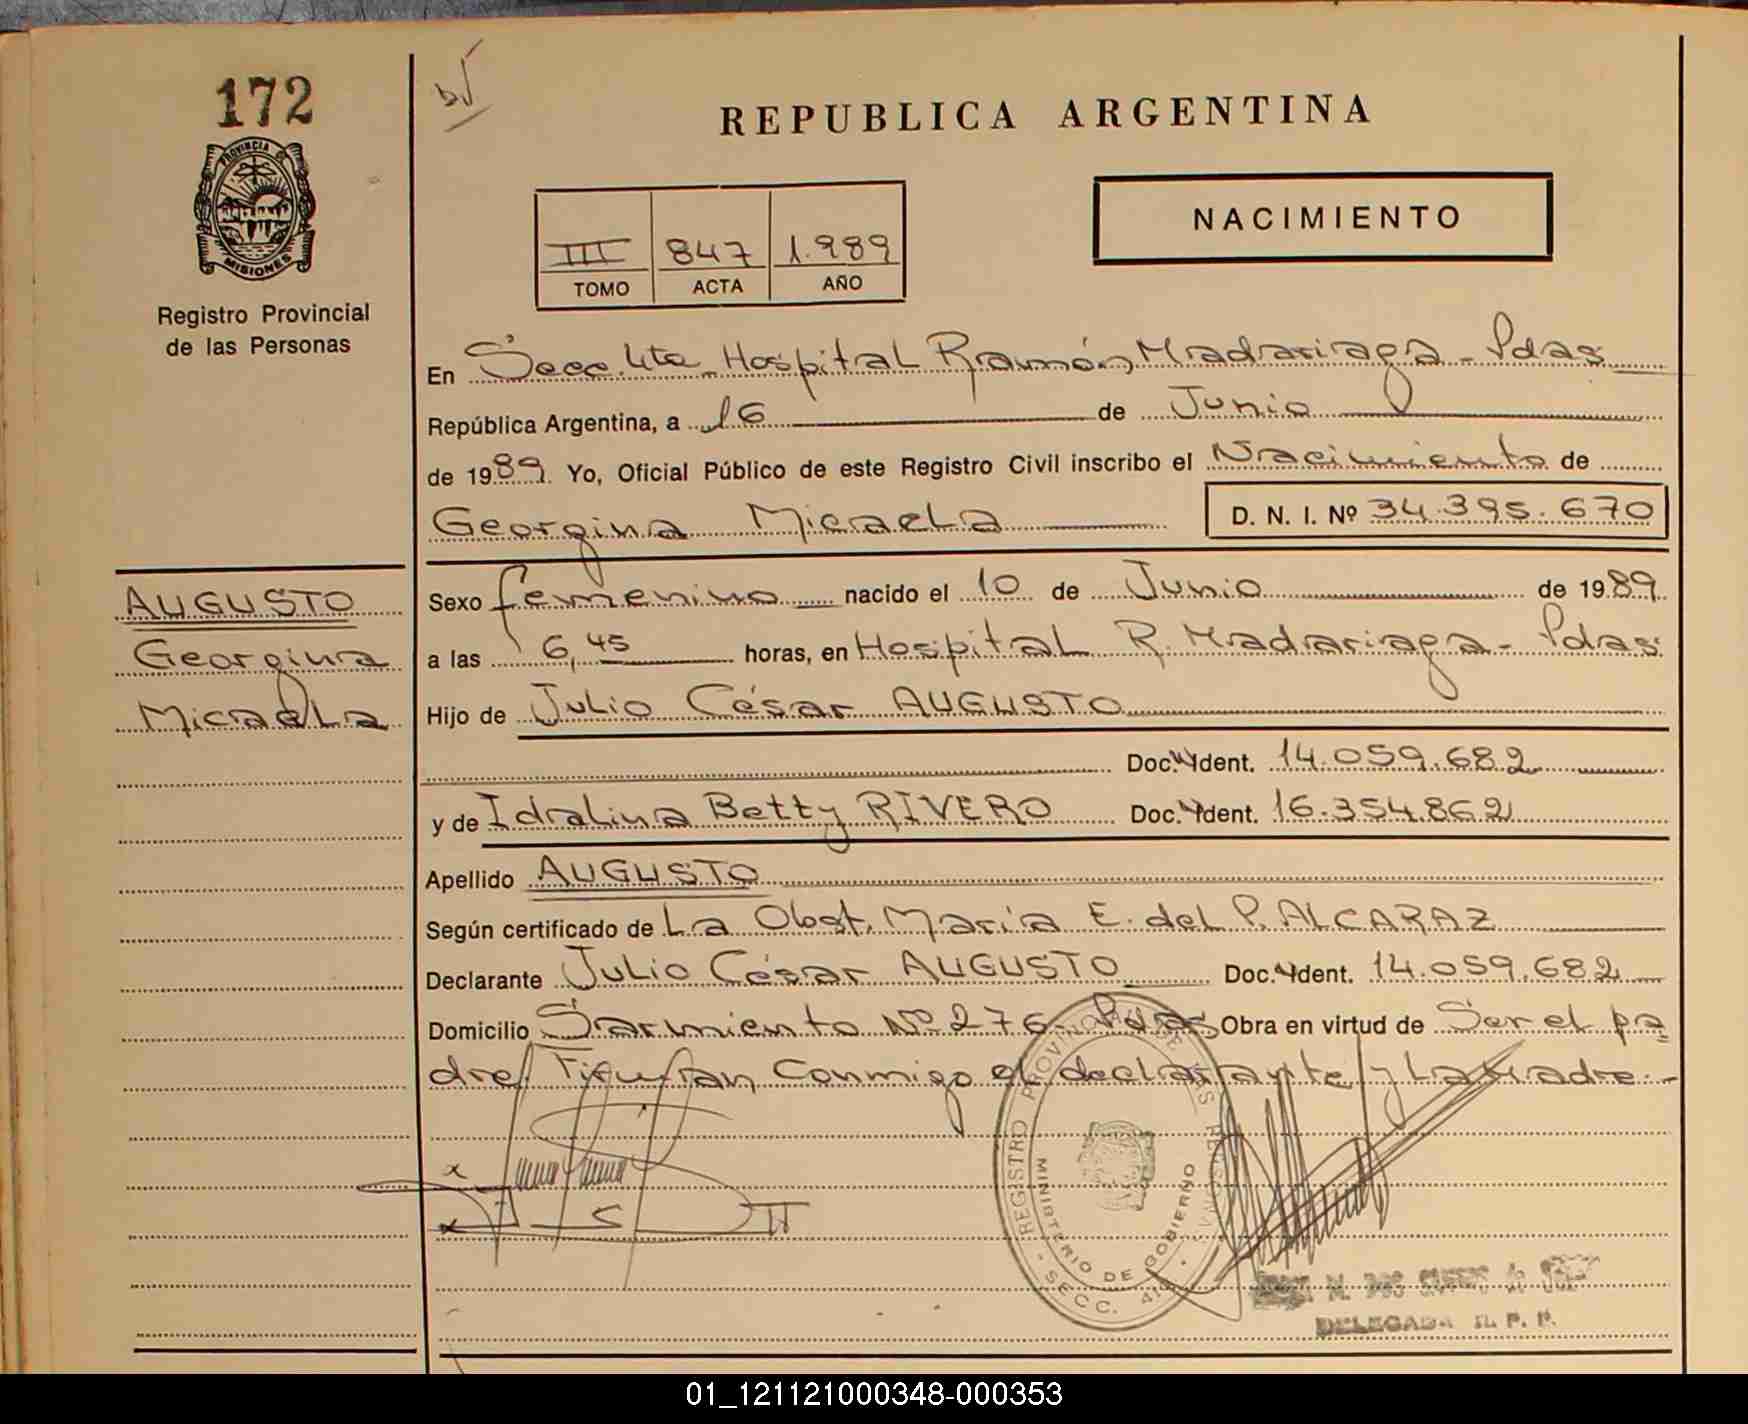 172
PROVINCIA DE
MISIONES
Registro Provincial
de las Personas
REPUBLICA ARGENTINA
NACIMIENTO
III 847 1.989
TOMO ACTA AÑO
En Secc. 4ta. Hospital Ramón Madariaga - Pdas
República Argentina, a 16 de Junio
de 1989. Yo, Oficial Público de este Registro Civil inscribo el Nacimiento de
Georgina Micaela D. N. I. Nº 34.395.670
AUGUSTO
Georgina
Micaela
Sexo femenino nacido el 10 de Junio de 1989
a las 6,45 horas, en Hospital R. Madariaga - Pdas.
Hijo de Julio César AUGUSTO
Doc. Ident. 14.059.682
y de Idalina Betty RIVERO Doc. Ident. 16.354.862
Apellido AUGUSTO
Según certificado de La Obst. María E. del P. ALCARAZ
Declarante Julio César AUGUSTO Doc. Ident. 14.059.682
Domicilio Sarmiento Nº 276 - Pdas Obra en virtud de Ser el pa
dre/ Firman Conmigo el declarante y La Madre.-
REGISTRO PROVINCIAL DE LAS PERSONAS
MINISTERIO DE GOBIERNO
SECC. 4ta.
DELEGADA R. P. P.
01_121121000348-000353